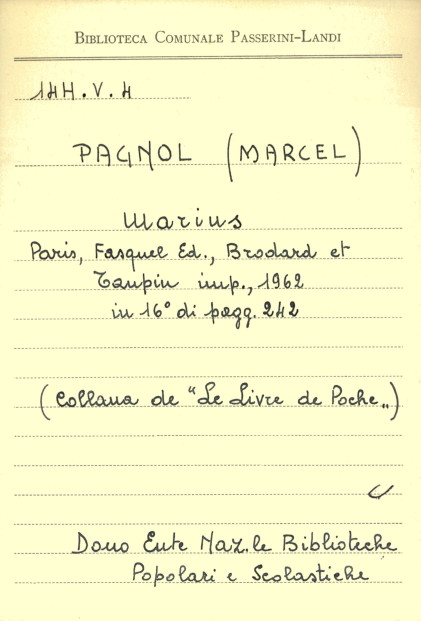 BIBLIOTECA COMUNALE PASSERINI-LANDI
14H.V.4
PAGNOL (MARCEL)
Marius
Paris, Fasquel Ed., Brodard et
Taupin imp., 1962
in 16° di pagg. 242
(Collana de "Le Livre de Poche„)
Dono Ente Naz.le Biblioteche
Popolari e Scolastiche